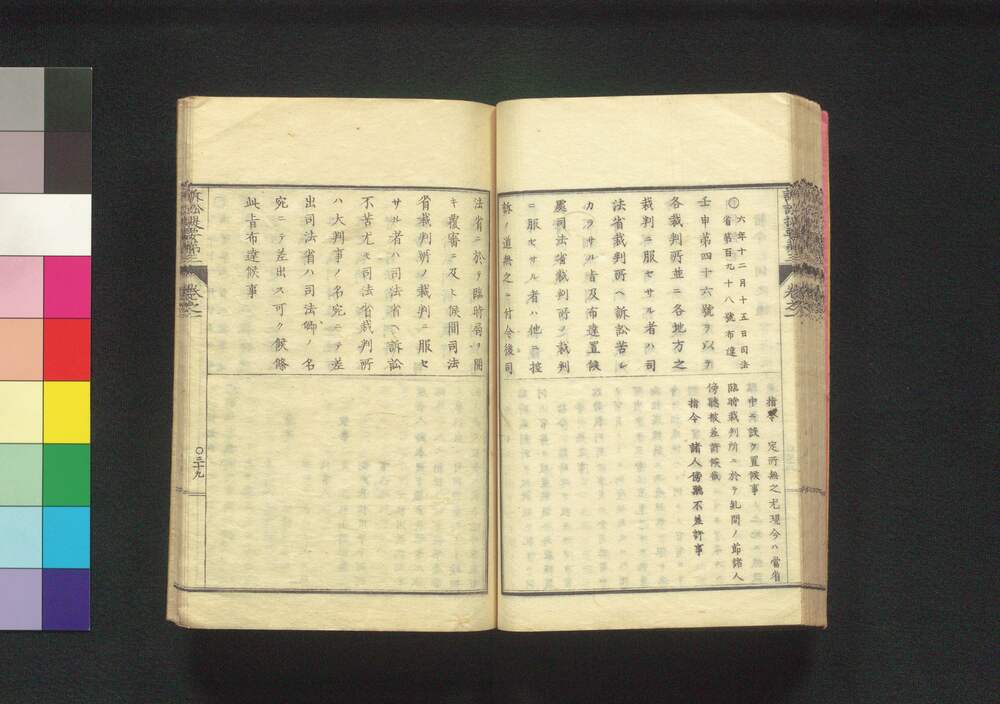 六年十二月十五日司法
省第百九十八號布達
壬申第四十六號ヲ以テ
各裁判所並ニ各地方之
裁判ニ服セサル者ハ司
法省裁判所ヘ訴訟苦シ
カラサル旨及布達置候
處司法省裁判所ノ裁判
ニ服セサル者ハ他ニ控
訴ノ道無之ニ付今後司
指令 定所無之尤現今ハ當省
中ニ設ケ置候事
臨時裁判所ニ於テ糺問ノ節諸人
傍聽被差許候哉
指令 諸人傍聽不差許事
法省ニ於テ臨時局ヲ開
キ覆審ニ及ヒ候間司法
省裁判所ノ裁判ニ服セ
サル者ハ司法省ヘ訴訟
不苦尤モ司法省裁判所
ハ大判事ノ名宛ニテ差
出司法省ハ司法卿ノ名
宛ニテ差出ス可ク候條
此旨布達候事
卷之一
〇三十九